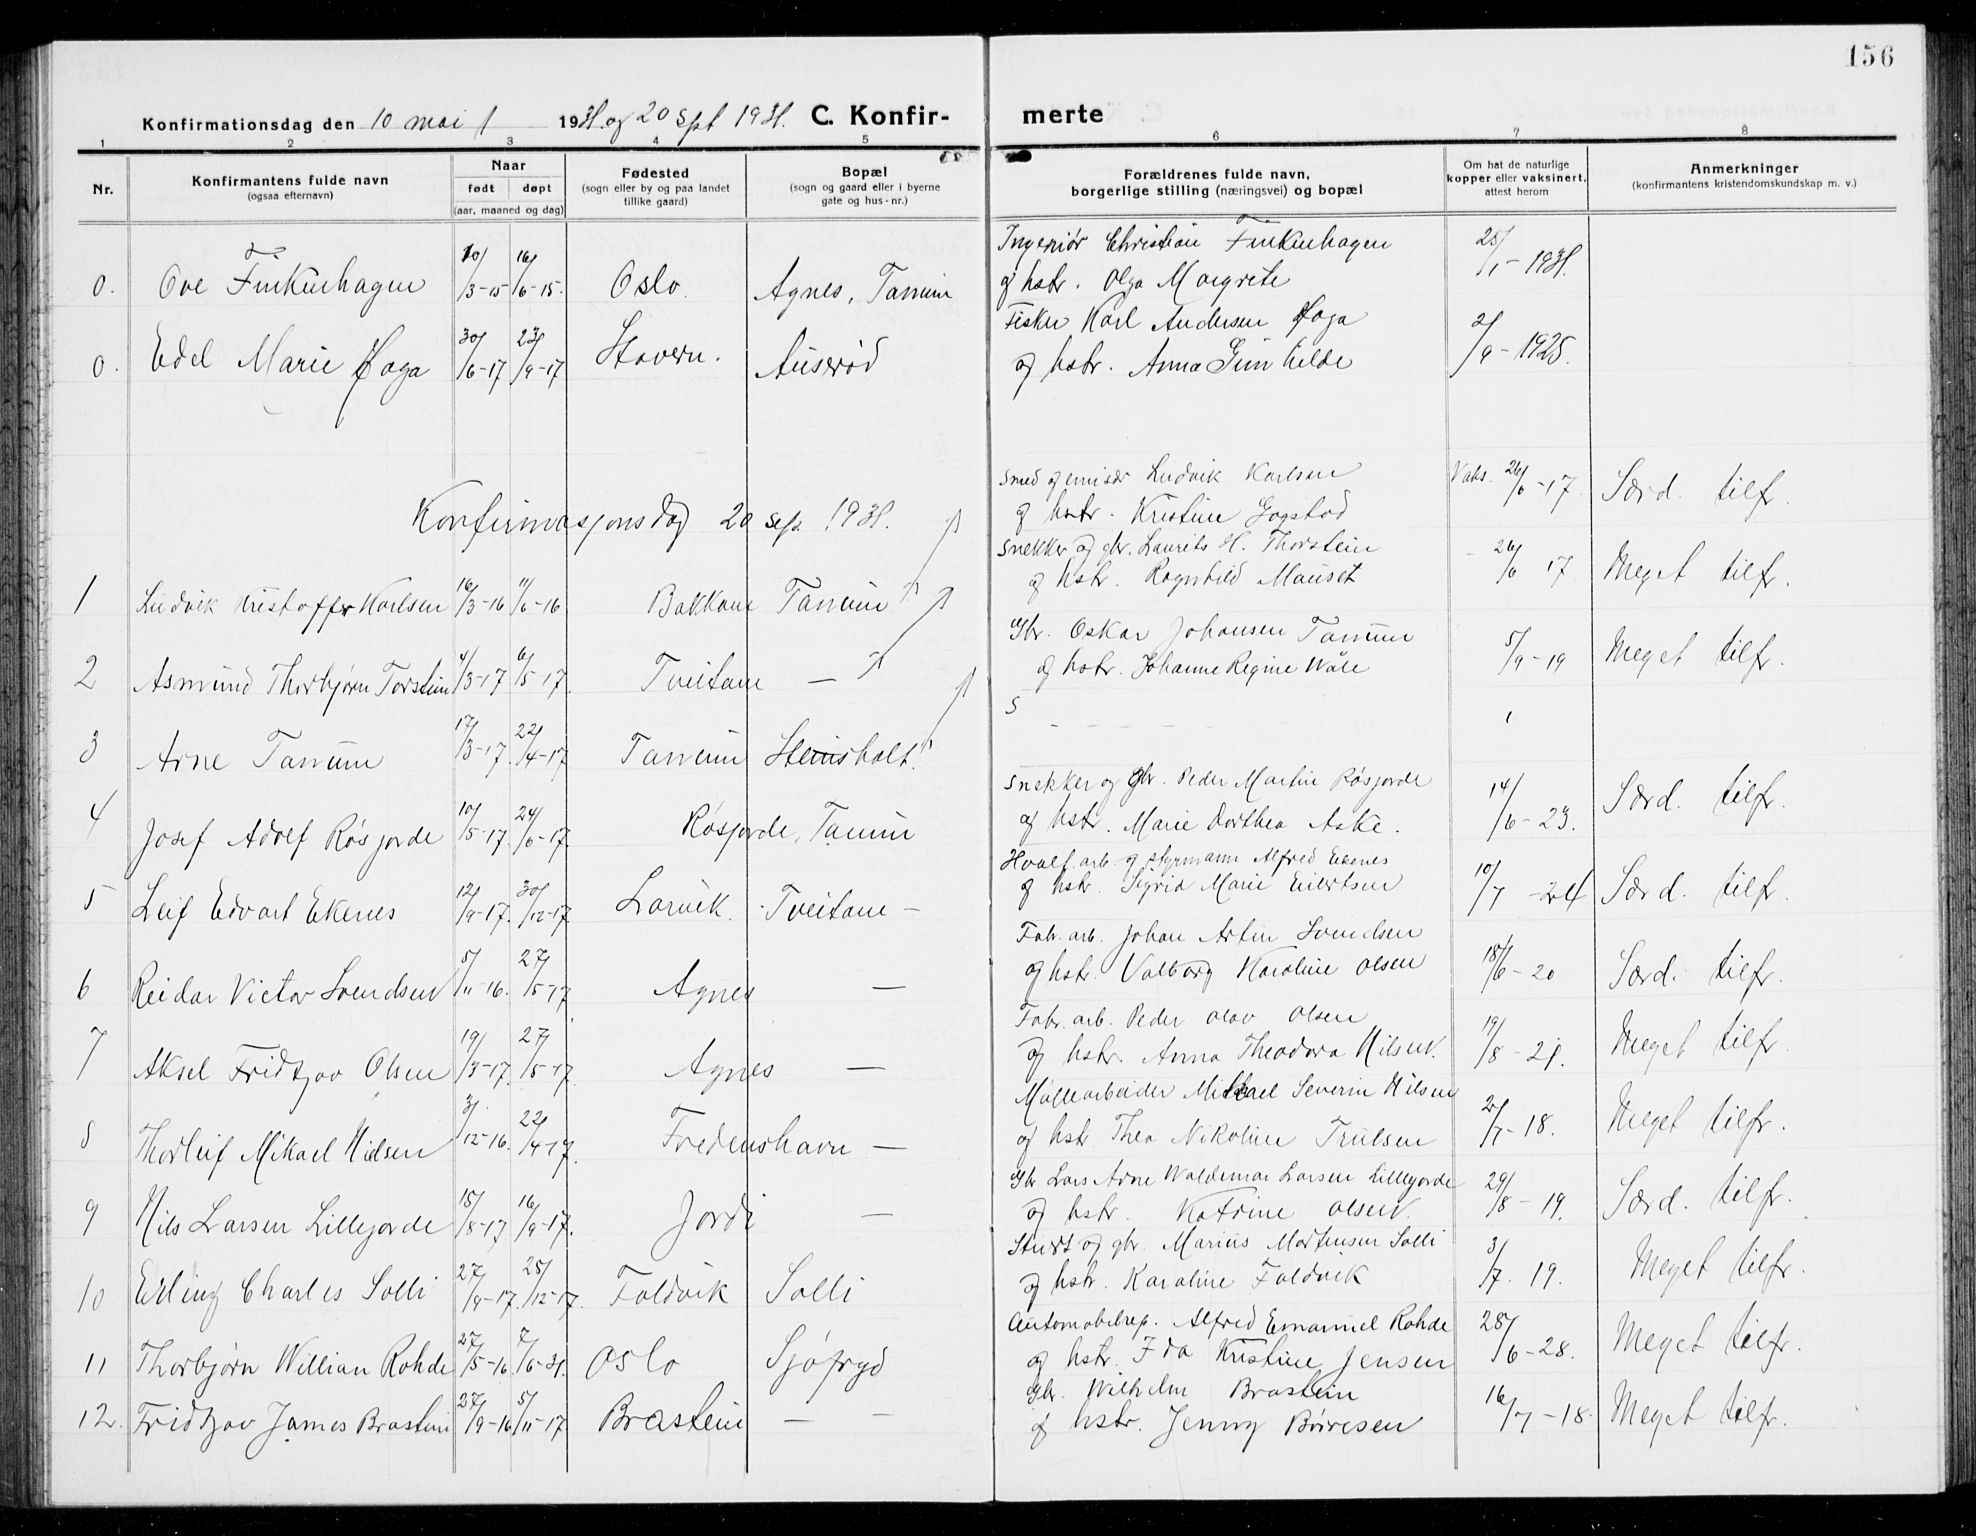 156
Konfirmationsdag den 10 mai 1931. og 20 sept 1931. C. Konfirmerte
1 2 3 4 5 6 7 8
Nr.
Konfirmantens fulde navn
(ogsaa efternavn)
Naar
født døpt
(aar, maaned og dag)
Fødested
(sogn eller by og paa landet
tillike gaard)
Bopæl
(sogn og gaard eller i byerne
gate og hus-nr.)
Forældrenes fulde navn,
borgerlige stilling (næringsvei) og bopæl
Om hat de naturlige
kopper eller vaksinert,
attest herom
Anmerkninger
(konfirmantens kristendomskundskap m. v.)
0. Ove Finkenhagen 10/3-15 16/6-15. Oslo Agnes, Tanum
Ingeniør Christian Finkenhagen
og hstr. Olga Margrete
25/1-1931.
0. Edel Marie Foga 30/6-17 23/9-17 Stavern. Auserød
Fisker Karl Andersen Foga
og hstr. Anna Gunhilde
2/9-1925.
Konfirmasjonsdag 20 sep. 1931.
1 Ludvik Kristoffer Karlsen 16/3-16 11/6-16 Bakkane Tanum
Smed og emisær Ludvik Karlsen
og hstr. Kristine Gogstad
Vaks. 26/6-17. Særd. tilfr.
2 Asmund Thorbjørn Torstein 4/3-17 6/5-17. Tveitane —
Snekker og gbr. Laurits H. Thorstein
og hstr. Ragnhild Mauset
26/6 17 Meget tilfr.
3 Arne Tanum 17/3-17. 22/4-17 Tanum Steinsholt
Gbr. Oskar Johansen Tanum
og hstr. Johanne Regine Wåle
5/9-19 Meget tilfr.
S
4 Josef Adolf Røsjorde 10/5-17. 24/6-17. Røsjorde, Tanum
Snekker og Gbr. Peder Martin Røsjorde
og hstr. Marie Dorthea Aske.
14/6-23. Særd. tilfr.
5 Leif Edvart Ekenes 12/9-17. 30/12-17. Larvik. Tveitane —
Hvalf. arb. og styrmann Alfred Ekenes
og hstr. Sigrid Marie Evertsen
10/7-24 Særd. tilfr.
6 Reidar Victor Svendsen 5/11-16. 27/5-17 Agnes —
Fabr. arb. Johan Artin Svendsen
og hstr. Valborg Karoline Olsen
18/6-20 Særd. tilfr.
7 Aksel Fridtjov Olsen 19/3-17. 27/5-17. Agnes —
Fabr. arb. Peder Olav Olsen
og hstr. Anna Theodora Nilsen.
19/8-21. Meget tilfr.
8 Thorleif Mikael Nielsen 3/12-16. 22/4-17. Fredenshavn —
Møllearbeider Mikael Severin Nilsen
og hstr. Thea Nikoline Trulsen
2/7-18. Meget tilfr.
9 Nils Larsen Lillejorde 15/8-17 16/9-17. Jordi —
Gbr Lars Arne Waldemar Larsen Lillejorde
og hstr. Katrine Olsen.
29/8-19. Særd. tilfr.
10 Erling Charles Solli 27/9-17. 25/12-17. Foldvik Solli
Stuert og gbr. Marius Mortensen Solli
og hstr. Karoline Foldvik
3/7. 19. Meget tilfr.
11 Thorbjørn Willian Rohde 27/5-16. 7/6-31. Oslo Sjøfryd
Automobilrep. Alfred Emanuel Rohde
og hstr. Ida Kristine Jensen
28/6-28. Meget tilfr.
12. Fridtjov James Brastein 27/9-16 5/11-17 Brastein — —
Gbr. Wilhelm Brastein
og hstr. Jenny Børresen
16/7-18. Meget tilfr.